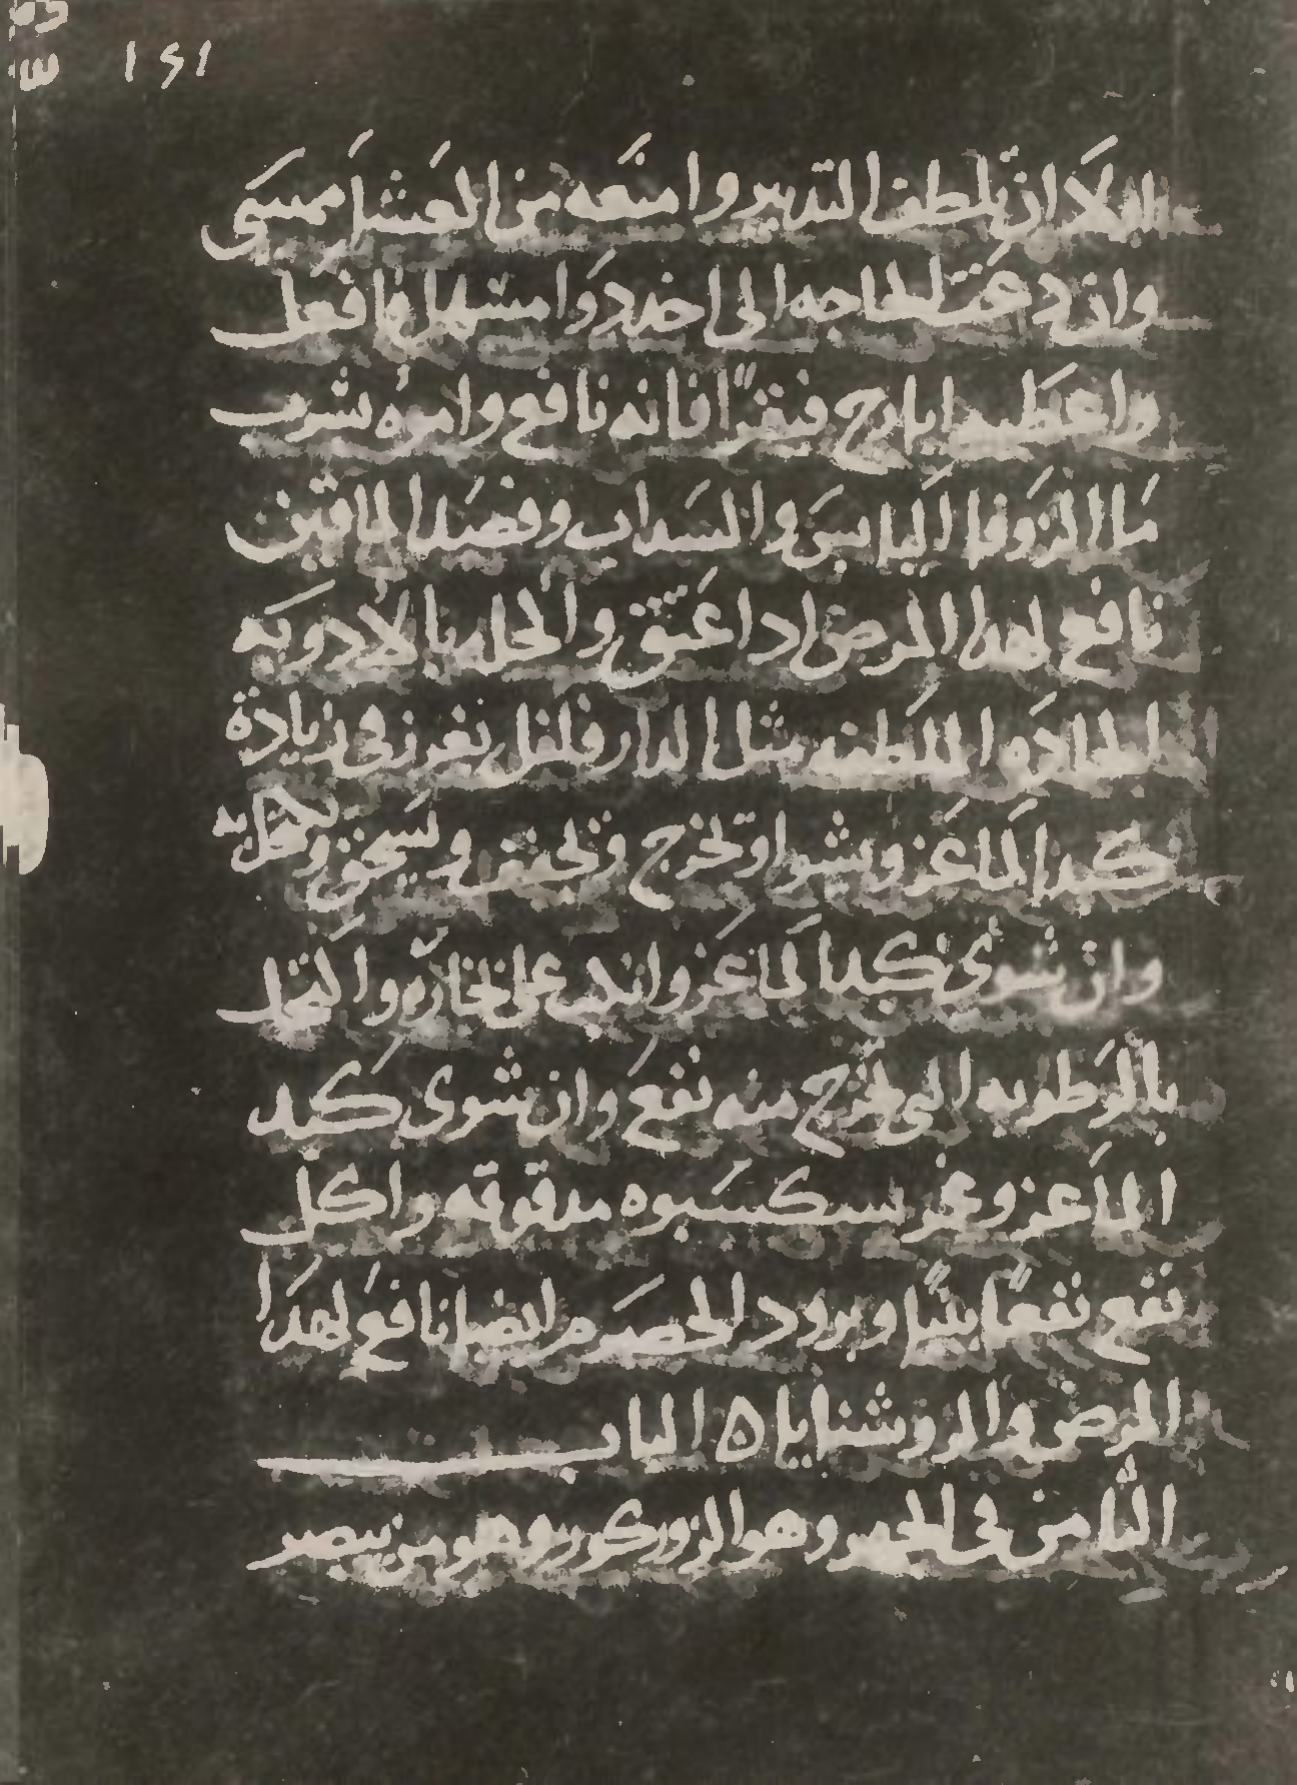 ١٢١
اولا ان يلطف التدبير وامنعه من العشا ممسى
وان دعت الحاجه الى اخد دوا مسهل فافعل
واعطيه ايارج فيقرًا فانه نافع وامره بشرب
ما الزوفا اليابس والسداب وفصد الماقين
نافع لهدا المرض ادا عتق والحل بالادويه
الحاده الملطفه مثل الدار فلفل تغرز فى زيادة
كبد الماعز ويشوا وتخرج وتجفف ويسحق ويكحل به
وان شوى كبد الماعز وانكب على بخاره واكتحل
بالرطوبه التى تخرج منه نفع وان شوى كبد
الماعز وغمز بسكسبوه مدقوقه واكل
نفع نفعًا بينًا وبرود الحصرم ايضا نافع لهدا
المرض والروشنايا ه الباب
الثامن فى الجهر وهو الزوركور وهو من يبصر